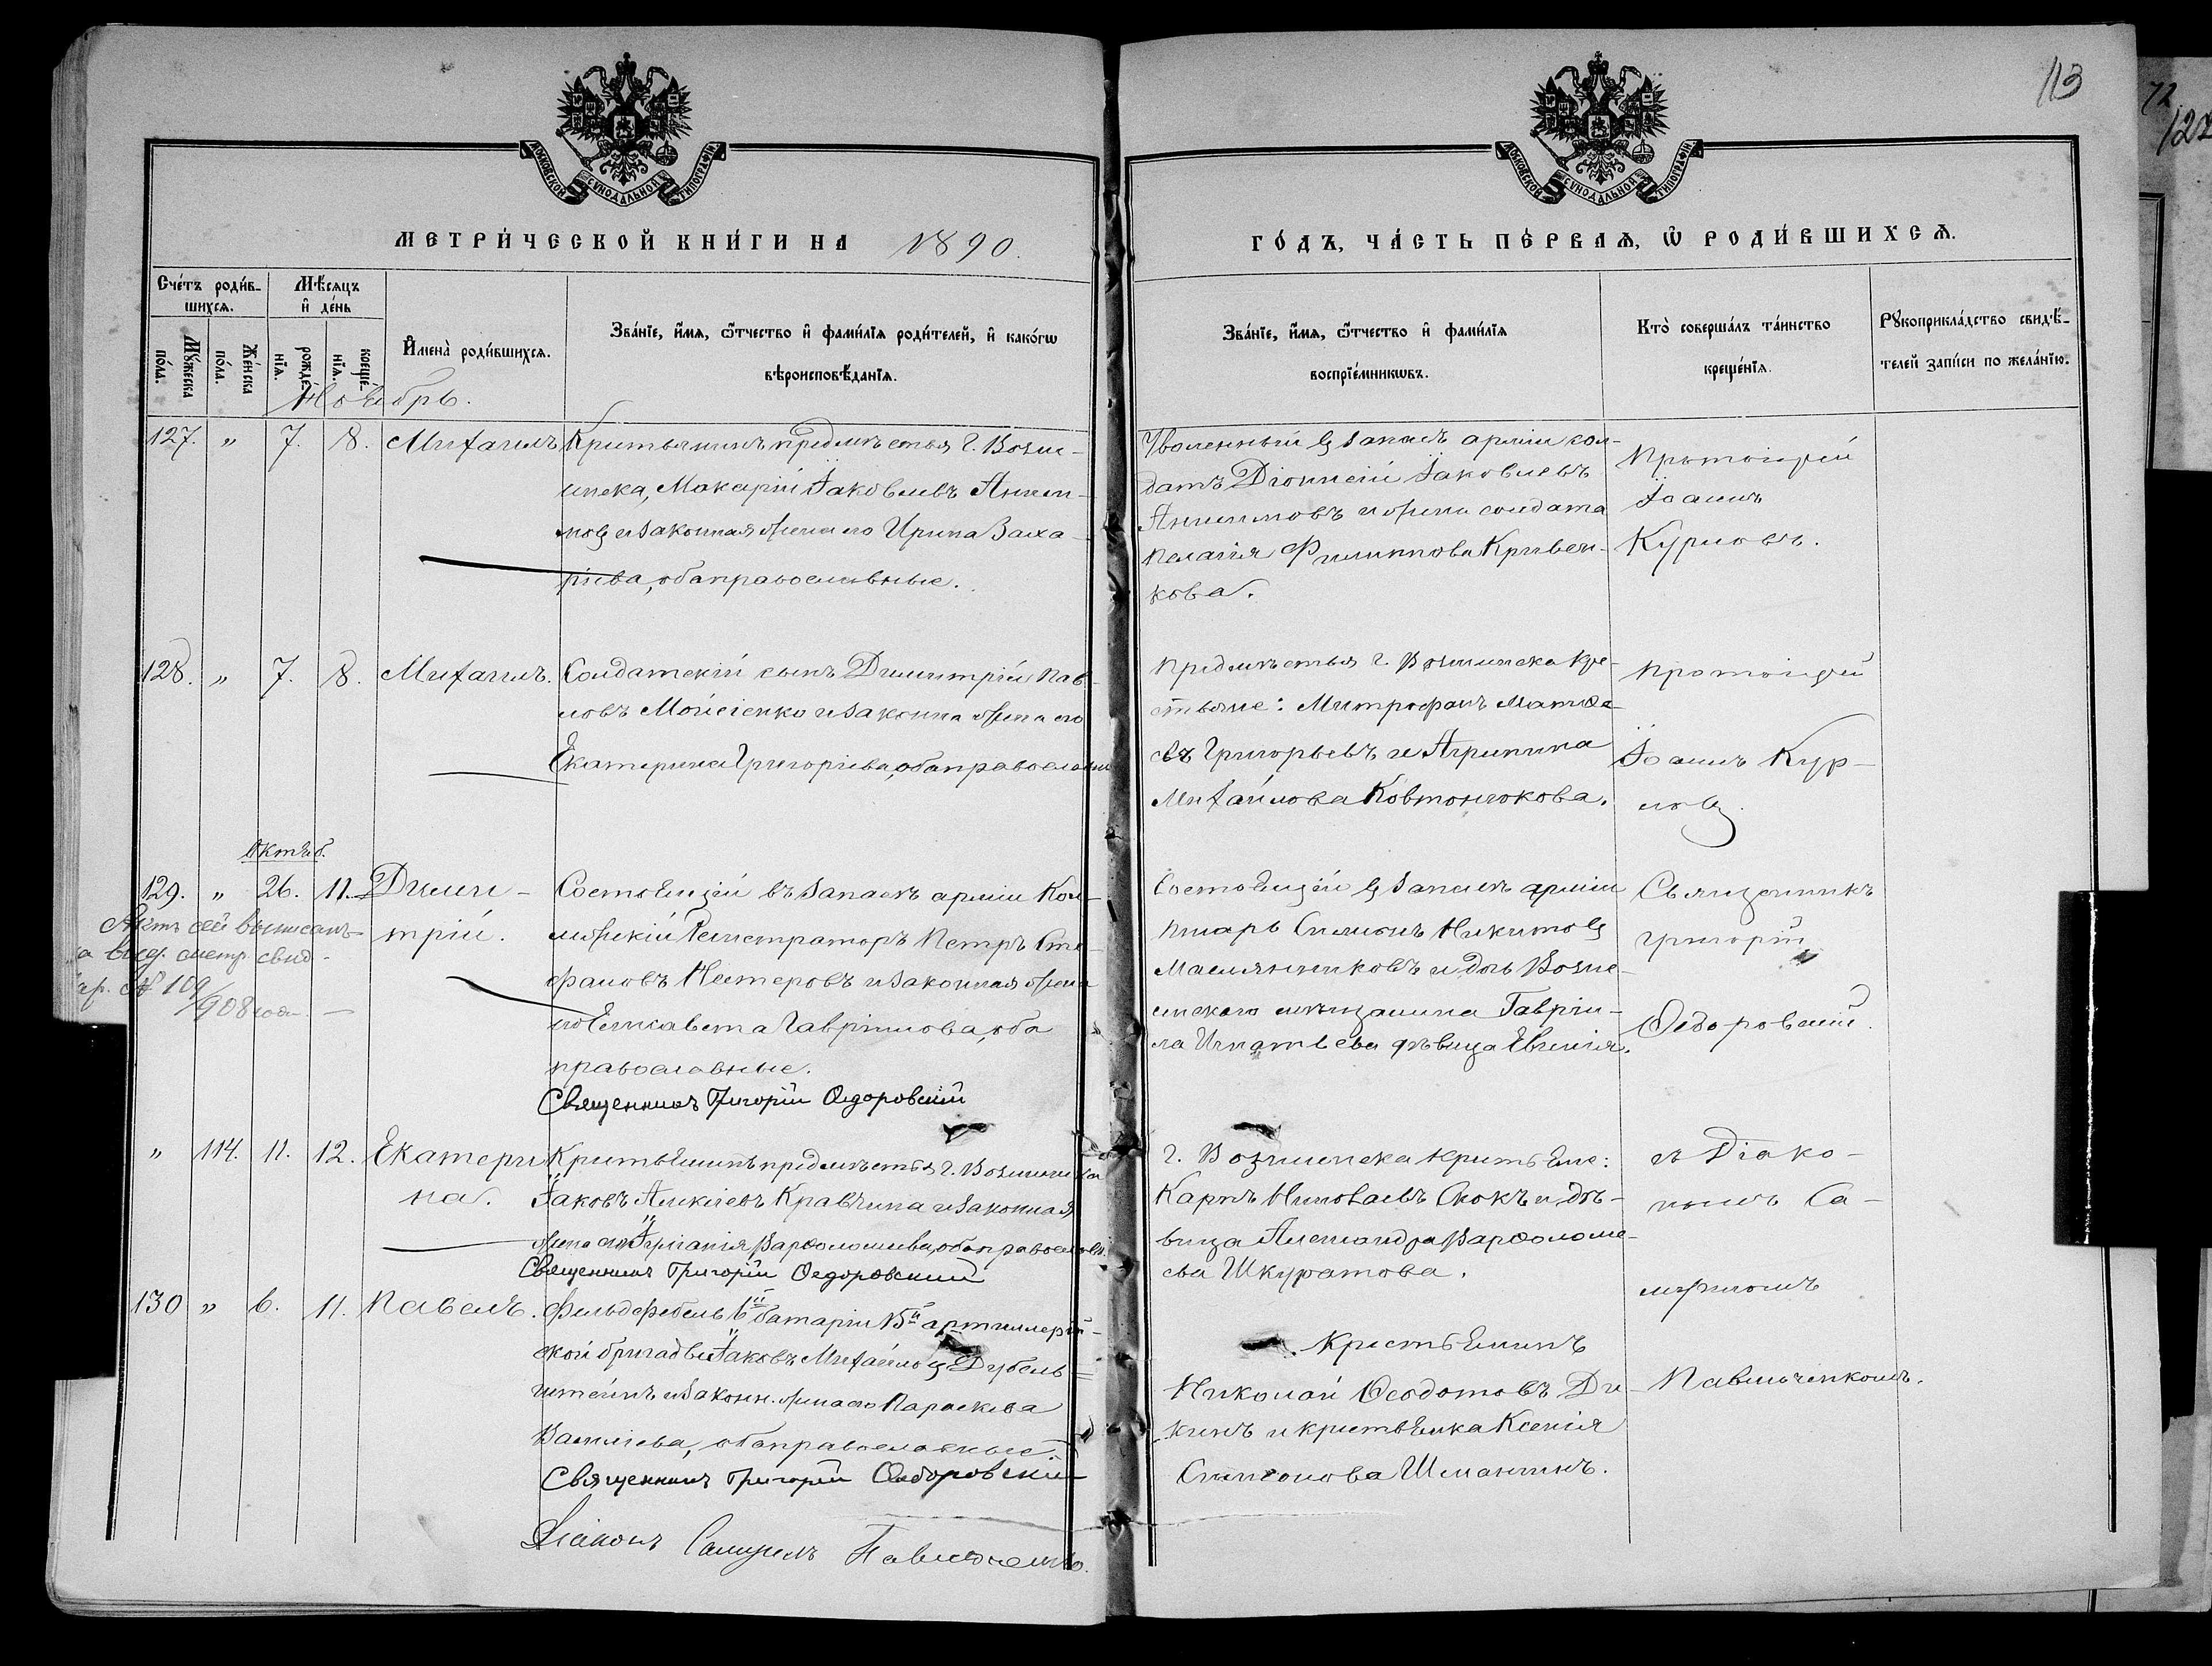 113
72
127
МОСКОВСКОЙ СѴНОДАЛЬНОЙ ТИПОГРАФІИ
МОСКОВСКОЙ СѴНОДАЛЬНОЙ ТИПОГРАФІИ
МЕТРИ́ЧЕСКОЙ КНИ́ГИ НА 1890.
ГО́ДЪ, ЧА́СТЬ ПЕ́РВАѦ, Ѡ҃ РОДИ́ВШИХСѦ.
Сче́тъ роди́в-
шихсѧ.
Мꙋ́жеска по́ла.
Же́нска по́ла.
Мѣ́сѧцъ
и҆ де́нь
рожде́нїѧ.
креще́нїѧ.
И҆мена̀ роди́вшихсѧ.
Зва́нїе, и҆́мѧ, ѻ҆́тчество и҆ фами́лїѧ роди́телей, и҆ како́гѡ
вѣроисповѣ́данїѧ.
Зва́нїе, и҆́мѧ, ѻ҆́тчество и҆ фами́лїѧ
воспрїе́мникѡвъ.
Кто̀ соверша́лъ та́инство
креще́нїѧ.
Рꙋкоприкла́дство свидѣ́-
телей за́писи по жела́нїю.
Ноябрь.
127. " 7. 8. Михаилъ
Крестьянинъ предмѣстья г. Возне-
сенска, Макарій Іаковлевъ Аниси-
мовъ и законная жена его Ирина Заха-
ріева, оба православные.
Уволенный въ запасъ арміи сол-
датъ Діонисій Іаковлевъ
Анисимовъ и жена солдата
Пелагія Филиппова Кривен-
кова.
Протоіерей
Іоаннъ
Курловъ.
128. " 7. 8. Михаилъ.
Солдатскій сынъ Димитрій Пав-
ловъ Мойсіенко и законна жена его
Екатерина Григоріева, оба православн
Предмѣстья г. Вознесенска кре-
стьяне: Митрофанъ Матѳе-
евъ Григорьевъ и Агрипина
Михайлова Ковтонюкова.
Протоіерей
Іоаннъ Кур-
ловъ.
Октяб.
129. " 26. 11. Дими-
трій.
Актъ сей выписанъ
а выд. метр. свид-
№ 109/908 года. —
Состоящій въ запасѣ арміи Кол-
лежскій Регистраторъ Петръ Сте-
фановъ Нестеровъ и законная жена
его Елисавета Гавріилова, оба
православные.
Священникъ Григорій Ѳедоровскій
Состоящій въ запасѣ арміи
писарь Симеонъ Никитовъ
Масляниковъ и дочь Возне-
сенского мѣщанина Гавріи-
ла Игнатьева дѣвица Евгенія.
Священникъ
Григорій
Ѳедоровскій.
" 114. 11. 12. Екатери
на.
Крестьянинъ предмѣстья г. Вознесенска
Іаковъ Алексіевъ Кравчина и законная
жена его Варѳоломеева, оба православн.
Священникъ Григорій Ѳедоровскій
г. Вознесенска крестьяне:
Карпъ Николаевъ Скокъ и дѣ-
вица Александра Варѳоломе-
ева Шкуратова.
съ Діако-
номъ Са-
130 " 6. 11. Павелъ.
Фельдфебель 6й батаріи 15й артиллерій-
ской бригады Іаковъ Михайловъ Дубель-
штейнъ и законн. жена его Параскева
Василіева, оба православные.
Священникъ Григорій Ѳедоровскій
Діаконъ Самуилъ Павлюченко.
Крестьянинъ
Николай Ѳеодотовъ Ди-
кинъ и крестьянка Ксенія
Симеонова Шманинъ.
Павлюченкомъ.